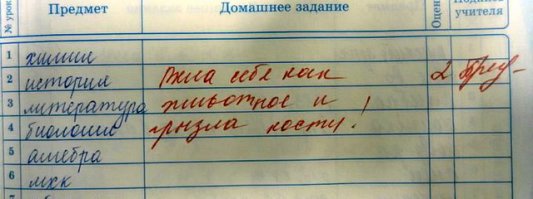 № урока Предмет Домашнее задание Оцен учителя
1 химии
2 история Вела себя как 2
3 литература животное и
4 биологии грызла кости!
5 алгебра
6 мхк
7